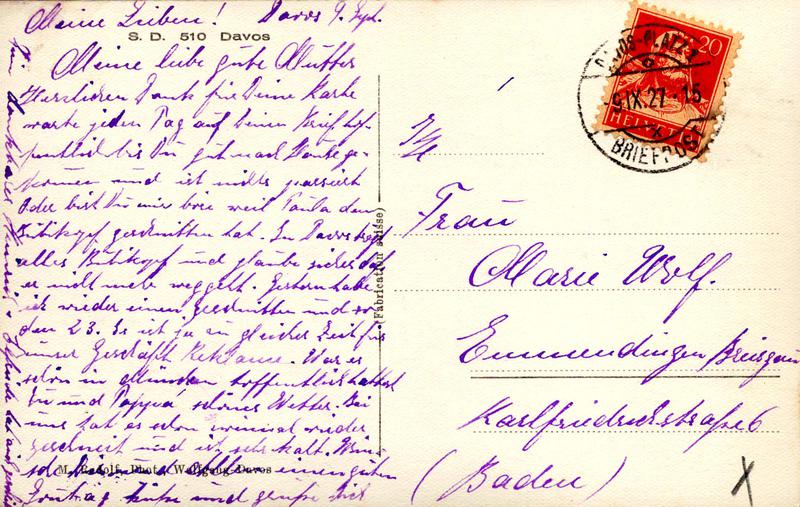 Meine Lieben! Davos 9. Sept.
S. D. 510 Davos
Meine liebe gute Mutter
Herzlichen Dank für Deine Karte
warte jeden Tag auf Deinen Brief hof-
fentlich bis Du gut nach Hause ge-
kommen und ist nichts passiert
Oder bist Du mir böse weil Paula den
Bubikopf geschnitten hat. In Davos trägt
alles Bubikopf und glaube sicher daß
er nicht mehr weggeht. Gestern habe
ich wieder einen geschnitten und so
den 23. Es ist ja zu gleicher Zeit für
unser Geschäft Reklame. War es
schön in München hoffentlich hattest
Du und Pappa schönes Wetter. Bei
uns hat es schon einmal wieder
geschneit und ist sehr kalt. Wün-
sche einen guten
M. Rudolf, Phot., Wolfgang-Davos
Sontag und grüße Dich
(Fabrication suisse)
DAVOS-PLATZ
9.IX.27.-15
BRIEFPOST
20
HELVETIA
Frau
Marie Wolf.
Emmendingen Breisgau
Karlfriedrichstraße 6
(Baden)
X